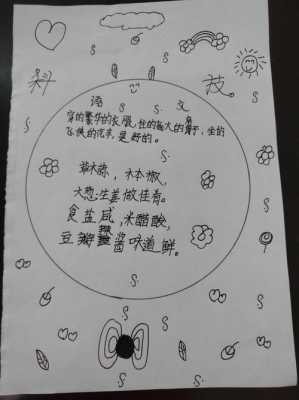 科 技
语 文
穿的繁华的衣服，住的高大的房子，坐的
飞快的汽车，是舒的。
草木棕，木本椒，
大葱生姜做佳肴。
食盐咸，米醋酸，
豆瓣辣酱味道鲜。